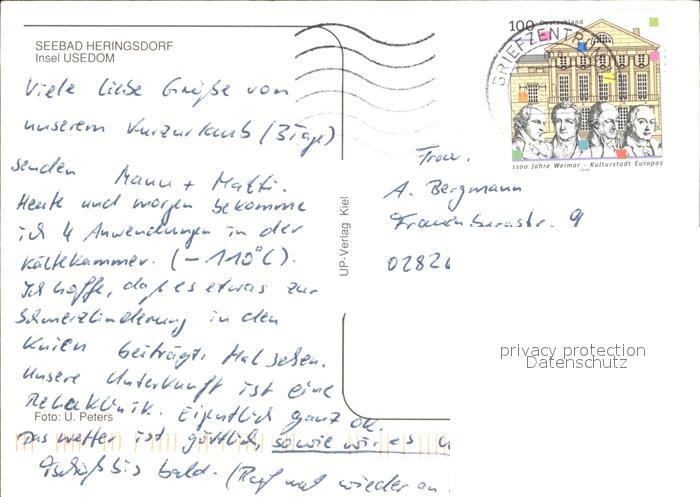 SEEBAD HERINGSDORF
Insel USEDOM
Viele liebe Grüße von
unserem Kurzurlaub (3 Tage)
senden Mann + Matti.
Heute und morgen bekomme
ich 4 Anwendungen in der
Kältekammer. (-110°C).
Ich hoffe, daß es etwas zur
Schmerzlinderung in den
Knien beiträgt. Mal sehen.
Unsere Unterkunft ist eine
Rehaklinik. Eigentlich ganz ok.
Foto: U. Peters
Das Wetter ist göttlich, sowie wir es
Tschüß bis bald. (Ruf mal wieder an
UP-Verlag Kiel
BRIEFZENTRUM
100 Deutschland
1100 Jahre Weimar - Kulturstadt Europas
Frau
A. Bergmann
9
0282
privacy protection
Datenschutz